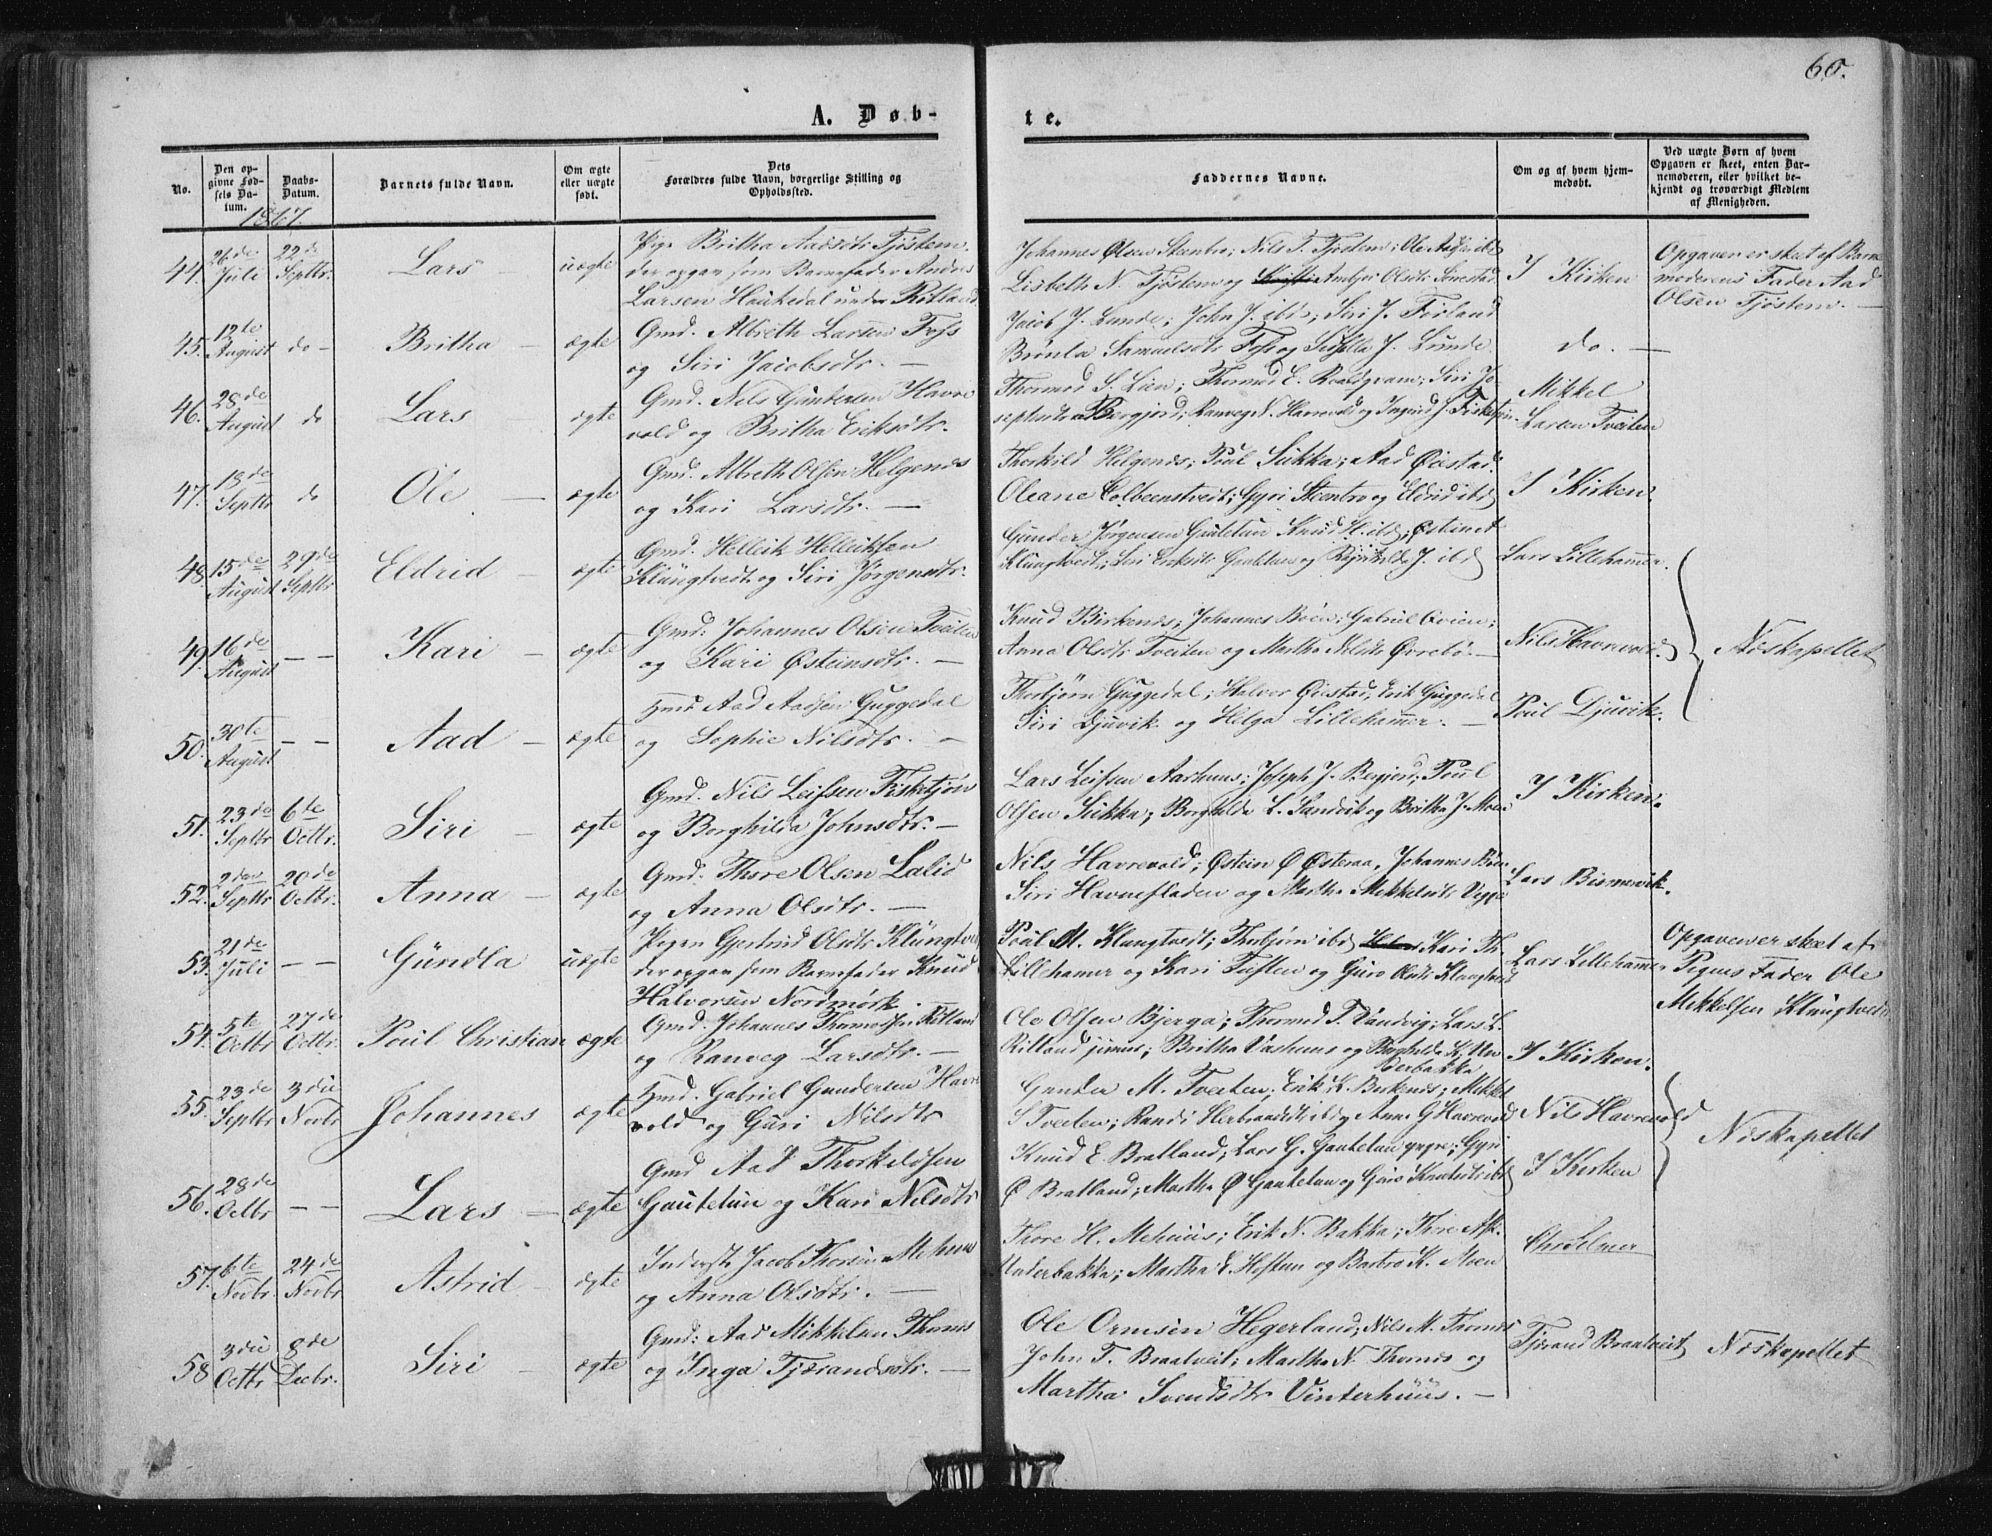 60.
A. Døb-
te.
No.
Den opgivne Fødsels Datum.
Daabs-Datum.
Barnets fulde Navn.
Om ægte eller uægte født.
Dets Forældres fulde Navn, borgerlige Stilling og Opholdssted.
Faddernes Navne.
Om og af hvem hjemmedøbt.
Ved uægte Børn af hvem Opgaven er skeet, enten Barnemoderen, eller hvilket bekjendt og troværdigt Medlem af Menigheden.
1867.
44. 26de Juli 22de Septbr. Lars uægte Pige Britha Aadsdtr Tjøstem.
der opgav som Barnefader Anders
Larsen Haukedal under Ritland
Johannes Olsen Steenbro; Nils T. Tjøstem; Ole Aadsen ibd
Lisbeth N. Tjøstem og Ambjør Olsdtr
I Kirken
Opgaven er skeet af Barne
moderens Fader Aad
Olsen Tjøstem. —
45. 12te August do — Britha — ægte Gmd. Albreth Larsen Foss
og Siri Jacobsdtr. —
Jacob J. Lunde; John J. ibd; Siri J. Foiland
Samuelsdtr Foss og J. Lunde.
do. —
46. 28de August do Lars — ægte Gmd. Nils Gundersen Havre
vold og Britha Eriksdtr.
Thormod S. Lien; Thormod E. Roaldqvam; Siri Jo
sephsdtr Bergjord; Ranveig N. Havrevold og Ingrid J. Fisketjøn
Mikkel
Larsen Tveiten
47. 18de Septbr do Ole — ægte Gmd. Albreth Olsen Helgenes
og Kari Larsdtr. —
Thorkild Helgenes; Poul Sukka; Aad Øiestad.
Oleane Colbeenstvedt; Gyri Steenbro og Eldrid ibd
I Kirken
48. 15de August 29de Septbr Eldrid — ægte Gmd. Helleik Helleiksen
Klungtvedt og Siri Jørgensdtr.
Gunder Jørgensen Gautetun Knud H. ibd; Østeinet
Klungtvedt; Siri Eriksdtr Gautetun og J. ibd
Lars Lillehammer.
49. 16de August — — Kari — ægte Gmd: Johannes Olsen Tveiten
og Kari Østeinsdtr. —
Knud Birkenes; Johannes Bøen; Gabriel Qvien;
Anna Olsdtr Tveiten og Martha Nilsdtr Øvrebø. —
Nils Havrevold.
Næskapellet
50. 30te August — — Aad — ægte Hmd Aad Aadsen Guggedal
og Sophie Nilsdtr. —
Thorbjørn Guggedal; Halvor Øiestad; Erik Guggedal
Siri Djuvik og Helga Lillehammer. —
Poul Djuvik.
51. 23de Septbr 6te Octbr. Siri — ægte Gmd. Nils Leifsen Fisketjøn
og Borghilda Johnsdtr. —
Lars Leifsen Aarhuus; Joseph J. Bergjord; Poul
Olsen Sukka; Borghilda L. Sandvik og Britha J. Moen
I Kirken.
52. 2den Septbr 20de Octbr. Anna — ægte Gmd. Thore Olsen Lalid
og Anna Olsdtr. —
Nils Havrevold; Østein Ø Østeraa; Johannes Bøen
Siri Havnefladen og Martha Mikkelsdtr
Lars Bismervik.
53. 21de Juli — — Gundla uægte Pigen Gjertrud Olsdtr Klungtvedt
der opgav som Barnefader Knud
Halvorsen Nordmørk.
Poul M. Klungtvedt; Thorbjørn ibd Kari Th.
Lillehamer og Kari Tuften og Guro Olsdtr Klungtvedt
Lars Lillehammer
Opgaven er skeet af
Pigens Fader Ole
Mikkelsen Klungtvedt
54. 5te Octbr 27de Octbr. Poul Christian ægte Gmd. Johannes Thormodsen Ritland
og Ranveg Larsdtr. —
Ole Olsen Bjerga; Thormod T. Vandvig; Lars L.
Ritland junior; Britha Vashuus og Borghilda K. Un
derbakka
I Kirken.
55. 23de Septbr 3die Novbr Johannes ægte Hmd. Gabriel Gundersen Havre
vold og Guri Nilsdtr
Gunder M. Tveiten; Erik K. Berkenes; Mikkel
S Tveiten; Randi Herbrandsdtr ibd og Anne G Havrevold
Nils Havrevold
Næskapellet
56. 28de Octbr — — Lars — ægte Gmd Aad Thorkildsen
Gautetun og Kari Nilsdtr
Knud E. Bratland; Lars G. Gautetun yngre; Gyri
Ø Bratland; Martha Ø Gautetun og Guro Knudsdtr ibd
I Kirken
57. 6te Novbr 24de Novbr Astrid — ægte Inderst Jacob Thorsen Mehuus
og Anna Olsdtr. —
Thore H. Mehuus; Erik N. Bakka; Thore
Underbakka; Martha E. Hoftun og Barbro K. Moen
Chr Selmer
58 3die Octbr 8de Decbr. Siri — ægte Gmd: Aad Mikkelsen Thornes
og Inga Tjærandsdtr. —
Ole Ormsen Hegerland; Nils M. Thornes
John T. Braatveit; Martha N. Thornes og
Martha Svendsdtr Vinterhuus. —
Tjerand Braatveit
Næskapellet